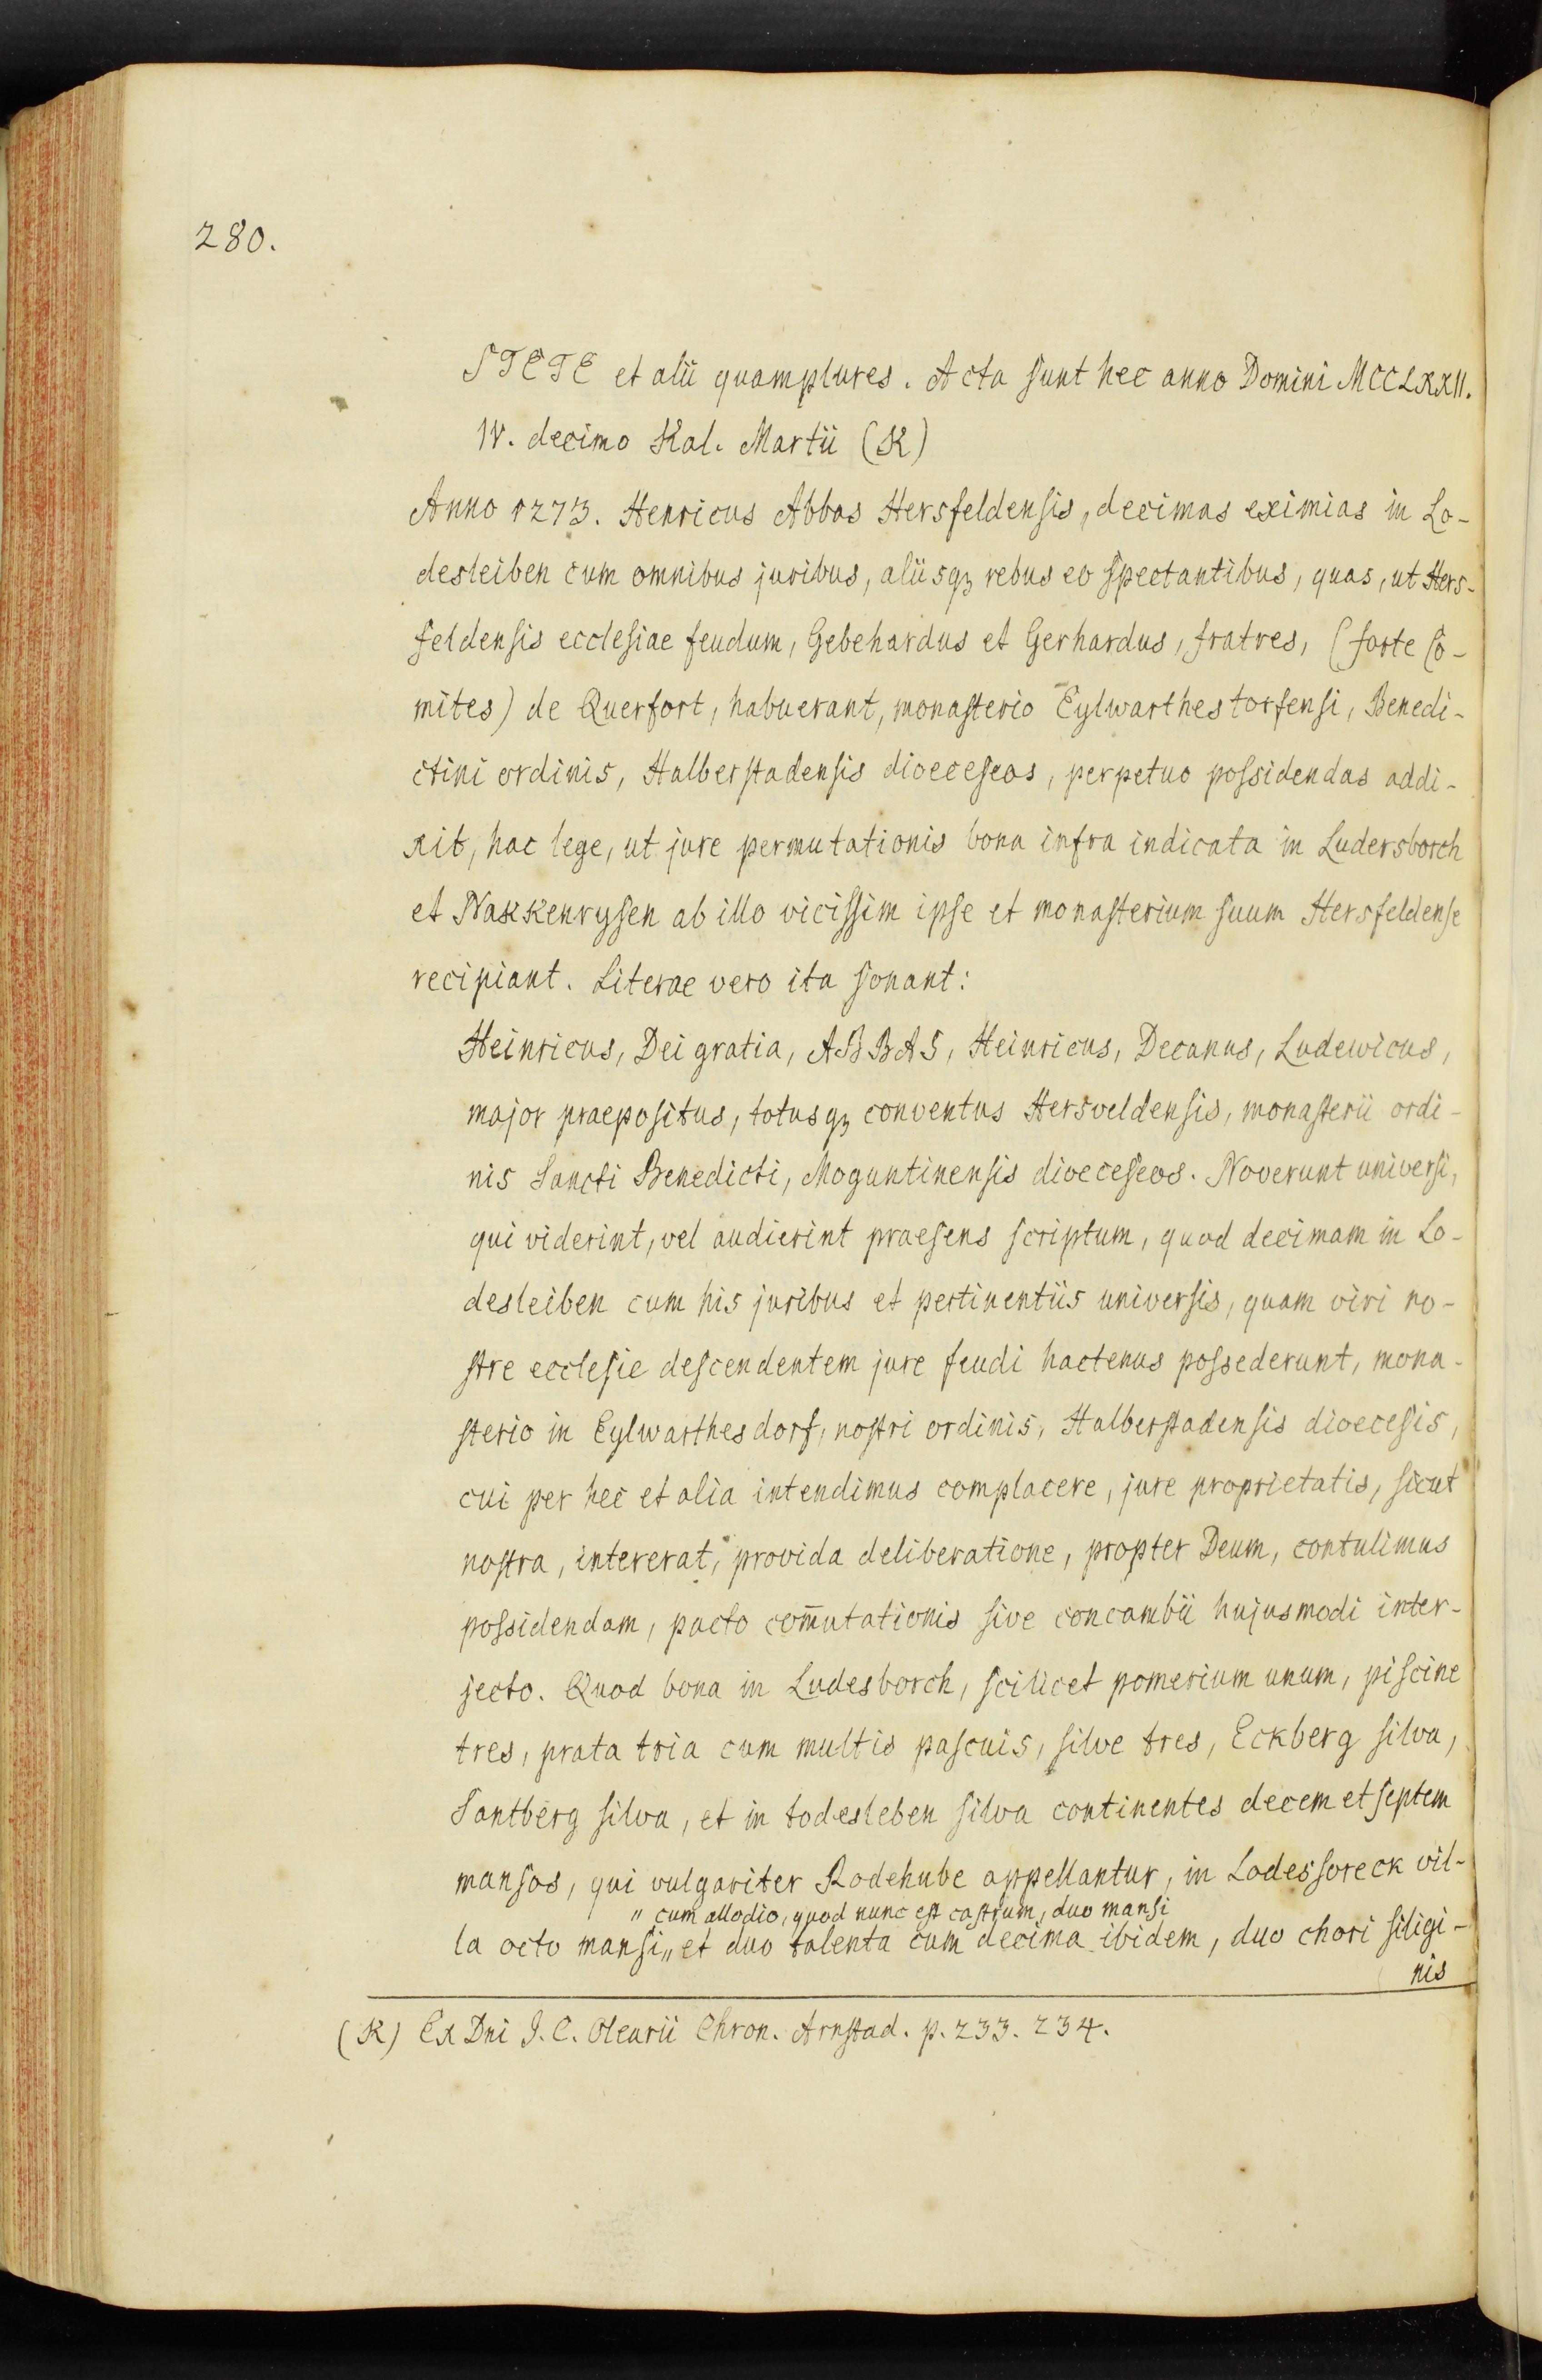 280.
STETE et alii quamplures. Acta sunt hec anno Domini MCCLXXII.
IV. decimo Kal. Martii (K)
Anno 1273. Henricus Abbas Hersfeldensis, decimas eximias in Lo-
desleiben cum omnibus juribus, aliisqꝫ rebus eo spectantibus, quas, ut Hers-
feldensis ecclesiae feudum, Gebehardus et Gerhardus, fratres, (forte Co-
mites) de Querfort, habuerant, monasterio Eylwarthestorfensi, Benedi-
ctini ordinis, Halberstadensis dioeceseos, perpetuo possidendas addi-
xit, hac lege, ut jure permutationis bona infra indicata in Ludersborch
et Nakkenrysen ab illo vicissim ipse et monasterium suum Hersfeldense
recipiant. Literae vero ita sonant:
Heinricus, Dei gratia, ABBAS, Heinricus, Decanus, Ludewicus,
major praepositus, totusqꝫ conventus Hersveldensis, monasterii ordi-
nis Sancti Benedicti, Moguntinensis dioeceseos. Noverunt universi,
qui viderint, vel audierint praesens scriptum, quod decimam in Lo-
desleiben cum his juribus et pertinentiis universis, quam viri no-
stre ecclesie descendentem jure feudi hactenus possederunt, mona-
sterio in Eylwarthesdorf, nostri ordinis, Halberstadensis dioecesis,
cui per hec et alia intendimus complacere, jure proprietatis, sicut
nostra, intererat, provida deliberatione, propter Deum, contulimus
possidendam, pacto com̄utationis sive concambii hujusmodi inter-
jecto. Quod bona in Ludesborch, scilicet pomerium unum, piscine
tres, prata tria cum multis pascuis, silve tres, Eckberg silva,
Santberg silva, et in todesleben silva continentes decem et septem
mansos, qui vulgariter Rodehube appellantur, in Lodessoreck vil-
" cum allodio, quod nunc est castrum, duo mansi
la octo mansi " et duo talenta cum decima ibidem, duo chori siligi-
nis
(K) Ex Dni J. C. Olearii Chron. Arnstad. p. 233. 234.